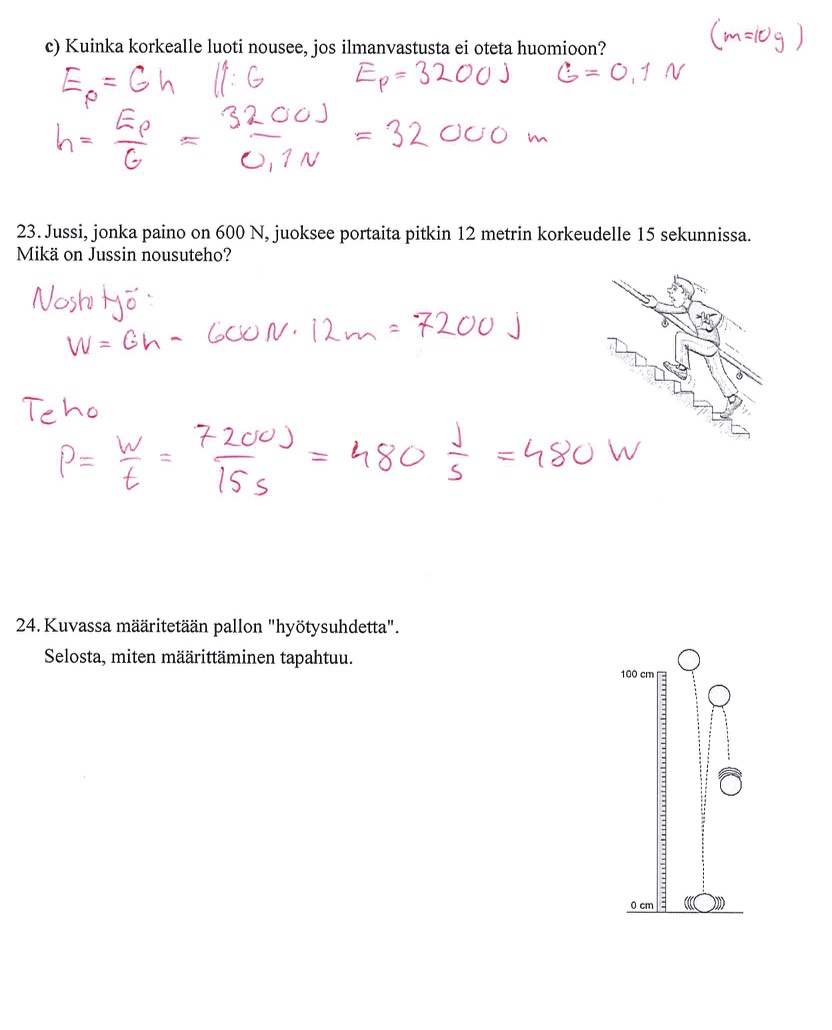 (m=10g)
c) Kuinka korkealle luoti nousee, jos ilmanvastusta ei oteta huomioon?
Ep = Gh ||:G Ep = 3200J G = 0,1 N
h = Ep/G = 3200J/0,1N = 32 000 m
23. Jussi, jonka paino on 600 N, juoksee portaita pitkin 12 metrin korkeudelle 15 sekunnissa.
Mikä on Jussin nousuteho?
Nostotyö:
W = Gh = 600N · 12m = 7200 J
Teho
P = W/t = 7200J/15s = 480 J/s = 480 W
24. Kuvassa määritetään pallon "hyötysuhdetta".
Selosta, miten määrittäminen tapahtuu.
100 cm
0 cm